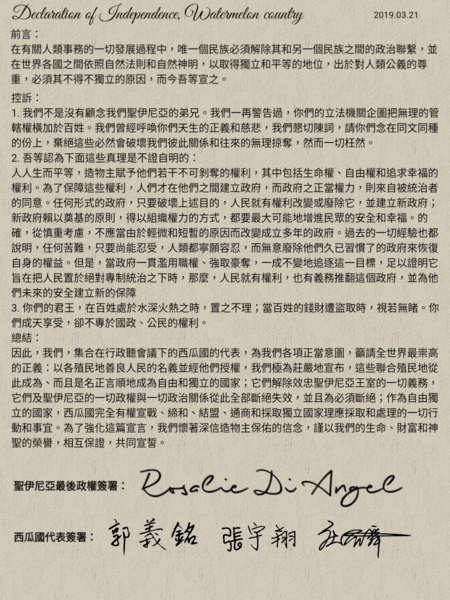 Declaration of Independence, Watermelon country
2019.03.21
前言：
在有關人類事務的一切發展過程中，唯一個民族必須解除其和另一個民族之間的政治聯繫，並
在世界各國之間依照自然法則和自然神明，以取得獨立和平等的地位，出於對人類公義的尊
重，必須其不得不獨立的原因，而今吾等宣之。
控訴：
1. 我們不是沒有顧念我們聖伊尼亞的弟兄。我們一再警告過，你們的立法機關企圖把無理的管
轄權橫加於百姓。我們曾經呼喚你們天生的正義和慈悲，我們懇切陳詞，請你們念在同文同種
的份上，棄絕這些必然會破壞我們彼此關係和往來的無理掠奪，然而一切枉然。
2. 吾等認為下面這些真理是不證自明的：
人人生而平等，造物主賦予他們若干不可剝奪的權利，其中包括生命權、自由權和追求幸福的
權利。為了保障這些權利，人們才在他們之間建立政府，而政府之正當權力，則來自被統治者
的同意。任何形式的政府，只要破壞上述目的，人民就有權利改變或廢除它，並建立新政府；
新政府賴以奠基的原則，得以組織權力的方式，都要最大可能地增進民眾的安全和幸福。的
確，從慎重考慮，不應當由於輕微和短暫的原因而改變成立多年的政府。過去的一切經驗也都
說明，任何苦難，只要尚能忍受，人類都寧願容忍，而無意廢除他們久已習慣了的政府來恢復
自身的權益。但是，當政府一貫濫用職權、強取豪奪，一成不變地追逐這一目標，足以證明它
旨在把人民置於絕對專制統治之下時，那麼，人民就有權利，也有義務推翻這個政府，並為他
們未來的安全建立新的保障
3. 你們的君王，在百姓處於水深火熱之時，置之不理；當百姓的錢財遭盜取時，視若無睹。你
們成天享受，卻不專於國政、公民的權利。
總結：
因此，我們，集合在行政聽會議下的西瓜國的代表，為我們各項正當意圖，籲請全世界最崇高
的正義：以各殖民地善良人民的名義並經他們授權，我們極為莊嚴地宣布，這些聯合殖民地從
此成為、而且是名正言順地成為自由和獨立的國家；它們解除效忠聖伊尼亞王室的一切義務，
它們及聖伊尼亞的一切政權與一切政治關係從此全部斷絕失效，並且為必須斷絕；作為自由獨
立的國家，西瓜國完全有權宣戰、締和、結盟、通商和採取獨立國家理應採取和處理的一切行
動和事宜。為了強化這篇宣言，我們懷著深信造物主保佑的信念，謹以我們的生命、財富和神
聖的榮譽，相互保證，共同宣誓。
聖伊尼亞最後政權簽署： Rosalie Di Angel
西瓜國代表簽署： 郭義銘 張宇翔